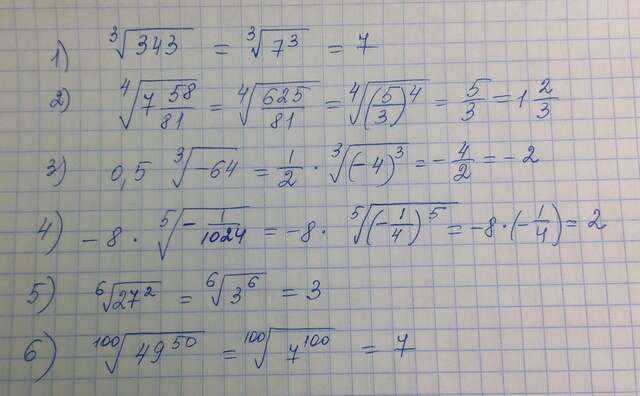 1) ∛343 = ∛7³ = 7
2) ∜(7 58/81) = ∜(625/81) = ∜((5/3)⁴) = 5/3 = 1 2/3
3) 0,5 ∛-64 = 1/2 · ∛(-4)³ = -4/2 = -2
4) -8 · ⁵√(-1/1024) = -8 · ⁵√((-1/4)⁵) = -8 · (-1/4) = 2
5) ⁶√27² = ⁶√3⁶ = 3
6) ¹⁰⁰√49⁵⁰ = ¹⁰⁰√7¹⁰⁰ = 7